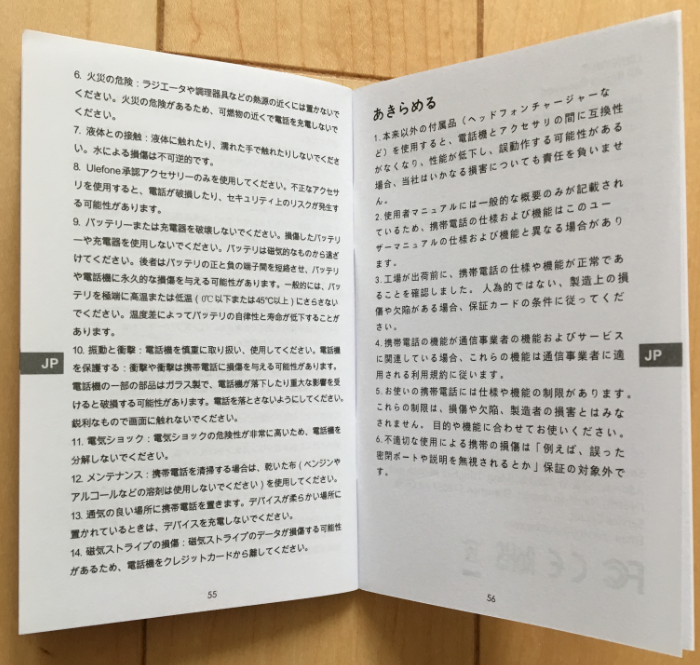 6. 火災の危険：ラジエータや調理器具などの熱源の近くには置かないで
ください。火災の危険があるため、可燃物の近くで電話を充電しないで
ください。
7. 液体との接触：液体に触れたり、濡れた手で触れたりしないでくださ
い。水による損傷は不可逆的です。
8. Ulefone承認アクセサリーのみを使用してください。不正なアクセサ
リを使用すると、電話が破損したり、セキュリティ上のリスクが発生す
る可能性があります。
9. バッテリーまたは充電器を破壊しないでください。損傷したバッテリ
ーや充電器を使用しないでください。バッテリは磁気的なものから遠ざ
けてください。後者はバッテリの正と負の端子間を短絡させ、バッテリ
や電話機に永久的な損傷を与える可能性があります。一般的には、バッ
テリを極端に高温または低温（0℃以下または45℃以上）にさらさない
でください。温度差によってバッテリの自律性と寿命が低下することが
あります。
10. 振動と衝撃：電話機を慎重に取り扱い、使用してください。電話機
を保護する：衝撃や衝撃は携帯電話に損傷を与える可能性があります。
電話機の一部の部品はガラス製で、電話機が落下したり重大な影響を受
けると破損する可能性があります。電話を落とさないようにしてください。
鋭利なもので画面に触れないでください。
11. 電気ショック：電気ショックの危険性が非常に高いため、電話機を
分解しないでください。
12. メンテナンス：携帯電話を清掃する場合は、乾いた布（ベンジンや
アルコールなどの溶剤は使用しないでください）を使用してください。
13. 通気の良い場所に携帯電話を置きます。デバイスが柔らかい場所に
置かれているときは、デバイスを充電しないでください。
14. 磁気ストライプの損傷：磁気ストライプのデータが損傷する可能性
があるため、電話機をクレジットカードから離してください。
JP
55
あきらめる
1.本来以外の付属品（ヘッドフォンチャージャーな
ど）を使用すると、電話機とアクセサリの間に互換性
がなくなり、性能が低下し、誤動作する可能性がある
場合、当社はいかなる損害についても責任を負いませ
ん。
2.使用者マニュアルには一般的な概要のみが記載され
ているため、携帯電話の仕様および機能はこのユー
ザーマニュアルの仕様および機能と異なる場合があり
ます。
3.工場が出荷前に、携帯電話の仕様や機能が正常であ
ることを確認しました。 人為的ではない、製造上の損
傷や欠陥がある場合、保証カードの条件に従ってくだ
さい。
4.携帯電話の機能が通信事業者の機能およびサービス
に関連している場合、これらの機能は通信事業者に適
用される利用規約に従います。
5.お使いの携帯電話には仕様や機能の制限があります。
これらの制限は、損傷や欠陥、製造者の損害とはみな
されません。 目的や機能に合わせてお使いください。
6.不適切な使用による携帯の損傷は「例えば、誤った
密閉ポートや説明を無視されるとか」保証の対象外で
す。
JP
56